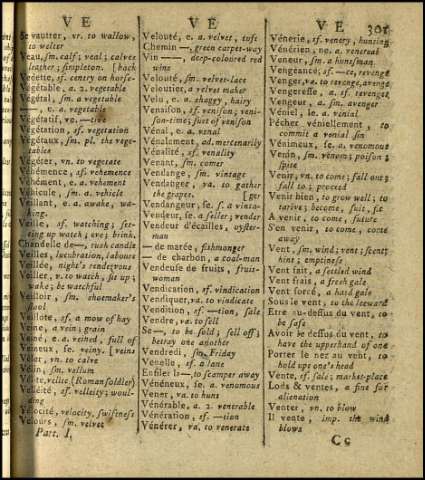 V E
V E
V E 301
Se vautrer, vr. to wallow,
to welter
Veau, sm. calf; veal; calves
leather; simpleton.
Vedette, sf. centry on horse-
Végétable, a. 2. vegetable
Végétal, sm. vegetable
—, e, a. vegetable
Végétatif, ve. —tive
Végétation, sf. vegetation
Végétaux, sm. pl. the vege-
tables
Végéter, vn. to vegetate
Véhémence, sf. vehemence
Véhément, e, a. vehement
Véhicule, sm. a vehicle
Veillant, e, a. awake, wa-
king.
Veille, sf. watching; sit-
ting up watch; eve; brink.
Chandelle de—, rush candle
Veilles, lucubration, labours
Veillée, night's rendezvous
Veiller, v. to watch, sit up;
wake; be watchful
Veilloir, sm. shoemaker's
stool
Veillote, sf. a mow of hay
Veine, a vein; grain
Veiné, e, a. veined, full of
Veineux, se. veiny. [veins
Vêler, vn. to calve
Vélin, sm. vellum
Vélite, velite (Roman soldier)
Velléité, sf. velleity; woul-
ding
Vélocité, velocity, swiftness
Velours, sm. velvet
Part. I.
Velouté, e, a. velvet, tuft
Chemin —, green carpet-way
Vin —, deep-coloured red
wine
Velouté, sm. velvet-lace
Veloutier, a velvet maker
Velu, e, a. shaggy, hairy
Venaison, sf. venison; veni-
son-time; fust of venison
Vénal, e, a. venal
Vénalement, ad. mercenarily
Vénalité, sf. venality
Venant, sm. comer
Vendange, sm. vintage
Vendanger, va. to gather
the grapes.
Vendangeur, se. s. a vinta-
Vendeur, se. a seller; vender
Vendeur d'écailles, oyster-
man
— de marée, fishmonger
— de charbon, a coal-man
Vendeuse de fruits, fruit-
woman
Vendication, sf. vindication
Vendiquer, va. to vindicate
Vendition, sf. —tion, sale
Vendre, va. to sell
Se—, to be sold; sell off;
betray one another
Vendredi, sm. Friday
Venelle, sf. a lane
Enfiler la—, to scamper away
Vénéneux, se. a. venomous
Vener, va. to hunt
Vénérable, a. 2. venerable
Vénération, sf. —tion
Vénérer, va. to venerate
Vénerie, sf. venery, hunting
Vénérien, ne. a. venereal
Veneur, sm. a huntsman.
Vengeance, sf. —ce, revenge
Venger, va. to revenge, avenge
Vengeresse, a. sf. avenger
Vengeur, a. sm. avenger
Véniel, le. a. venial
Pécher véniellement, to
commit a venial sin
Vénimeux, se. a. venomous
Venin, sm. venom; poison;
spite
Venir, vn. to come; fall out;
fall to; proceed
Venir bien, to grow well; to
thrive; become, suit, fit
A venir, to come, future
S'en venir, to come, come
away
Vent, sm. wind; vent; scent;
hint; emptiness
Vent fait, a settled wind
Vent frais, a fresh gale
Vent forcé, a hard gale
Sous le vent, to the leeward
Etre au-dessus du vent, to
be safe
Avoir le dessus du vent, to
have the upperhand of one
Porter le nez au vent, to
hold up one's head
Vente, sf. sale; market-place
Lods & ventes, a fine for
alienation
Venter, vn. to blow
Il vente, imp. the wind
blows
Cc